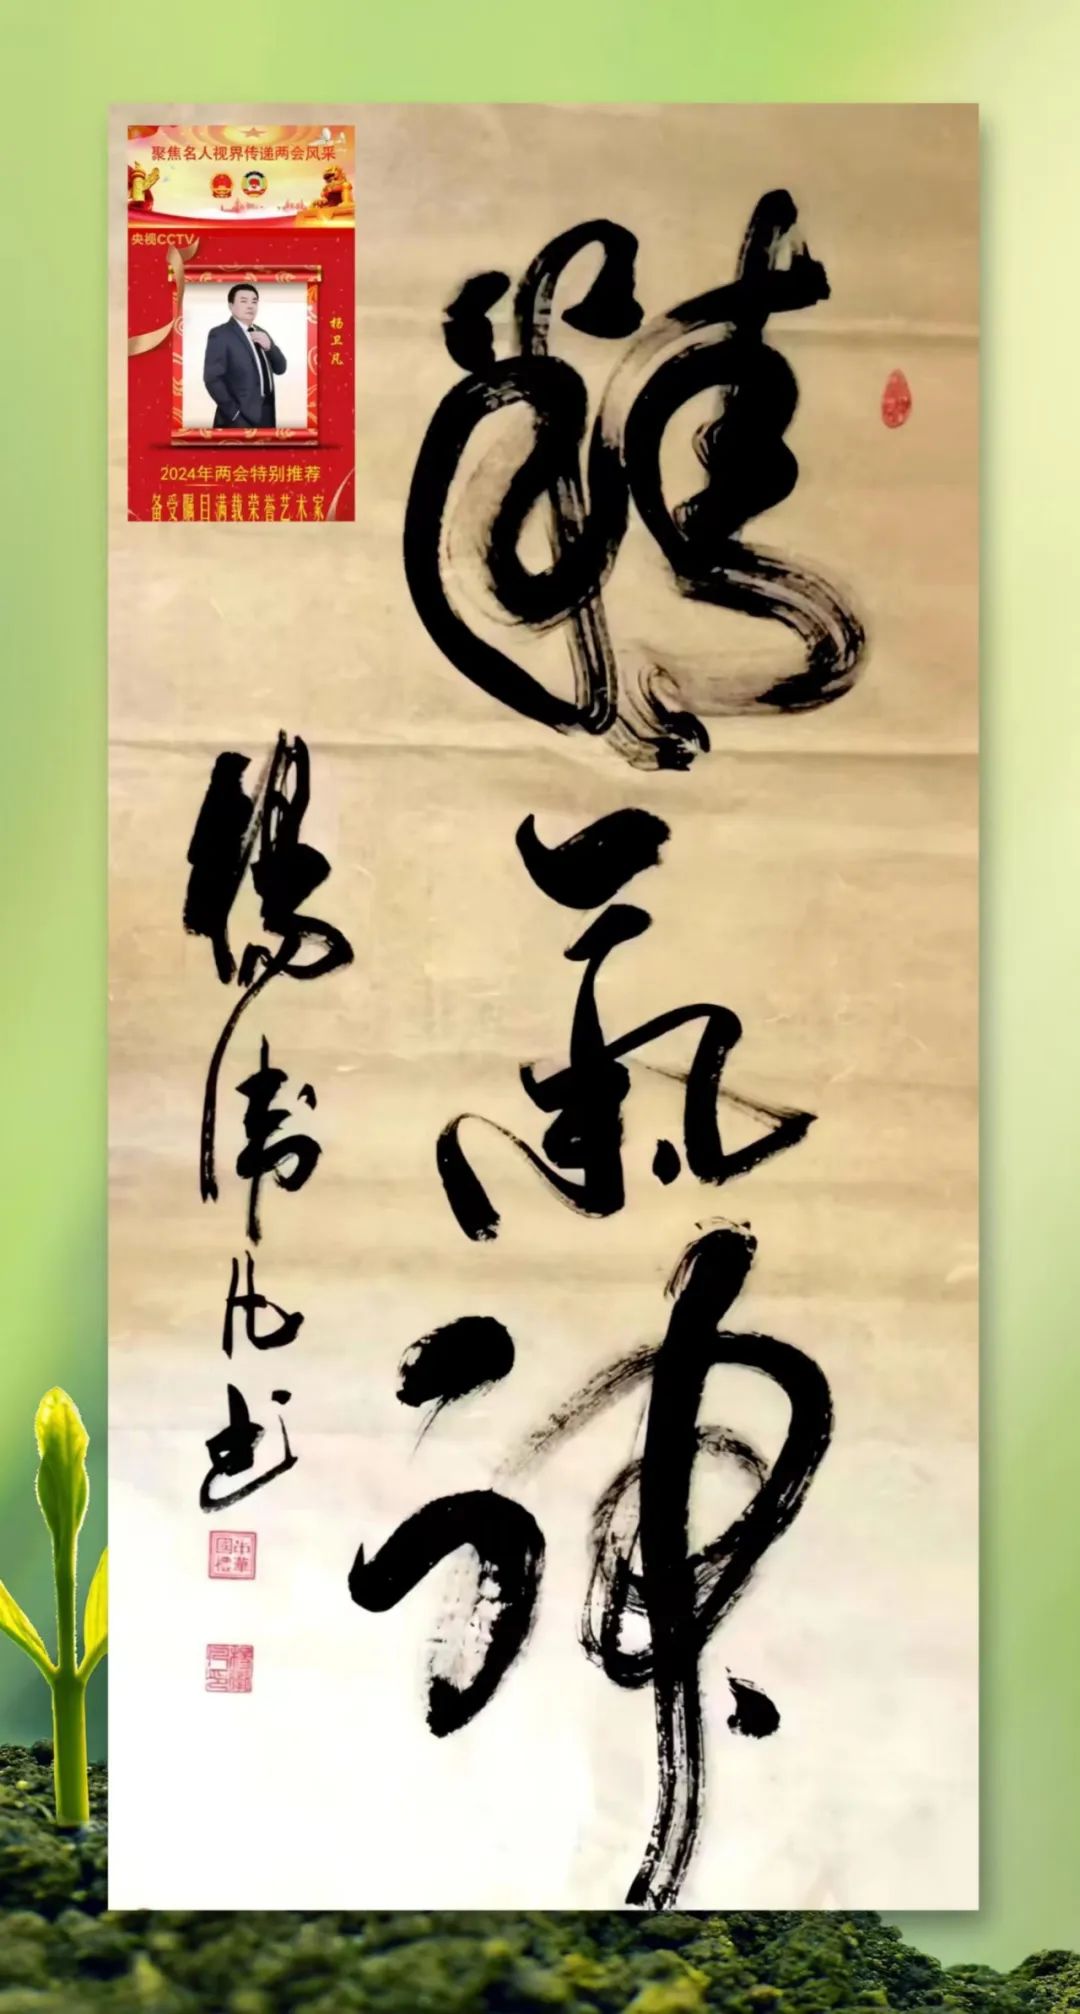 聚焦名人视界传递两会风采
央视CCTV
杨卫凡
2024年两会特别推荐
备受瞩目满载荣誉艺术家
精氣神
楊衛凡书